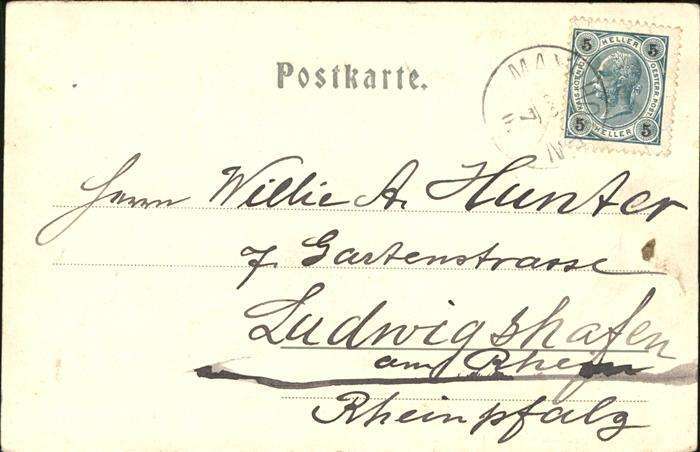 Postkarte.
5 HELLER 5
KAIS. KOENIGL. OESTERR. POST.
5 HELLER 5
MA
Herrn Willie A. Hunter
7. Gartenstrasse
Ludwigshafen
am Rhein
Rheinpfalz